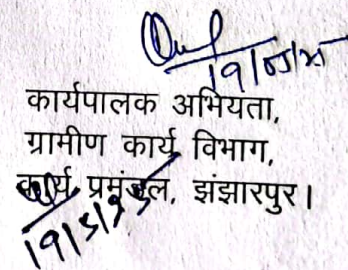 19/05/25
कार्यपालक अभियता,
ग्रामीण कार्य विभाग,
कार्य प्रमंडल, झंझारपुर।
19/5/25